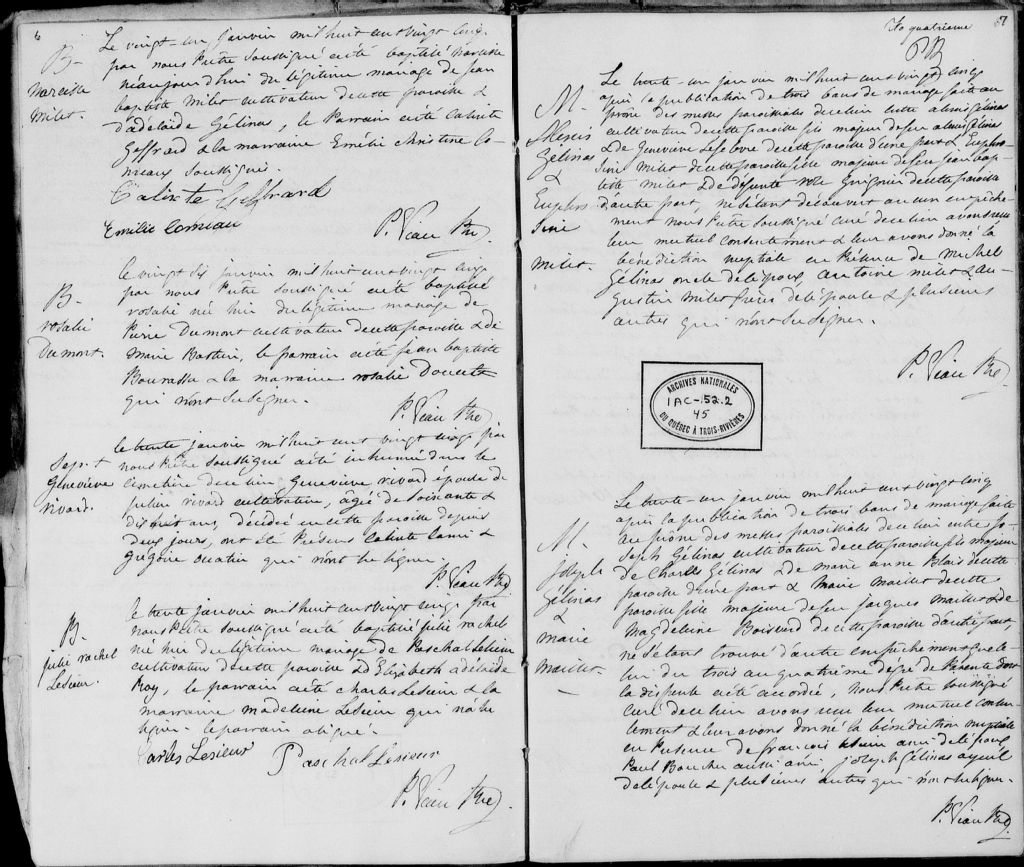 6
B.
narcisse
milet.
Le vingt-un janvier mil huit cent vingt cinq
par nous Prêtre soussigné a été baptisé narcisse
né aujourd'hui du légitime mariage de jean
baptiste milet cultivateur de cette paroisse &
d'adelaïde Gélinas, le Parrain a été Calixte
Geffrard & la marraine Emélie christine Cor-
neaux soussignés.
Calixte Geffrard
Emilie Corneau
P. Vian Ptre
B.
rosalie
Dumont.
le vingt six janvier mil huit cent vingt cinq
par nous Prêtre soussigné a été baptisé
rosalie née hier du légitime mariage de
Pierre Dumont cultivateur de cette paroisse & de
marie Bastien, le parrain a été jean baptiste
Bourassa & la marraine rosalie Doucette
qui n'ont su signer.
P. Vian Ptre
Sep.
Geneviève
rivard.
le trente janvier mil huit cent vingt cinq par
nous Prêtre soussigné a été inhumé dans le
cimetière de ce lieu Geneviève rivard épouse de
julien rivard cultivateur, agée de soixante &
dix huit ans, décédée en cette paroisse depuis
deux jours, ont été Présens Calixte Lami &
Grégoire qui n'ont su signer
P. Vian Ptre
B.
julie rachel
Lesieur.
le trente janvier mil huit cent vingt cinq par
nous Prêtre soussigné a été baptisé julie rachel
née hier du légitime mariage de Paschal Lesieur
cultivateur de cette paroisse & d'Elizabeth adélaide
Roy, le parrain a été charles Lesieur & la
marraine madeleine Lesieur qui n'a su
signer. le parrain a signé.
Carles Lesieur
Paschal Lesieur
P. Vian Ptre
51
fo quatrieme
PB
M.
Alexis
Gélinas
&
Euphro
sine
milet.
Le trente-un janvier mil huit cent vingt cinq
après la publication de trois bans de mariage faite au
prône des messes paroissiales de ce lieu entre alexis Gélinas
cultivateur de cette paroisse fils majeur de feu alexis Gélinas
& de Geneviève Lefebvre de cette paroisse d'une part & Euphro-
sine milet de cette paroisse fille majeure de feu jean bap-
tiste milet & de défunte de cette paroisse
d'autre part, ne s'étant découvert aucun empêche-
ment nous Prêtre soussigné curé de ce lieu avons reçu
leur mutuel consentement & leur avons donné la
bénédiction nuptiale en Présence de michel
Gélinas oncle de l'époux, antoine milet & au-
gustin milet frères de l'épouse & plusieurs
autres qui n'ont su signer.
P. Vian Ptre
ARCHIVES NATIONALES
1AC-152.2
45
DU QUÉBEC À TROIS-RIVIÈRES
M.
joseph
Gélinas
&
marie
maillet.
Le trente-un janvier mil huit cent vingt cinq
après la publication de trois bans de mariage faite
au prône des messes paroissiales de ce lieu entre jo-
seph Gélinas cultivateur de cette paroisse fils majeur
de Charles Gélinas & de marie anne Blais de cette
paroisse d'une part & marie maillet de cette
paroisse fille majeure de feu jacques maillet & de
magdeleine Boisvert de cette paroisse d'autre part,
ne s'étant trouvé d'autre empêchement que ce-
lui du trois au quatrième dégré de Parenté dont
la dispense a été accordée, nous Prêtre soussigné
curé de ce lieu avons reçu leur mutuel consen-
tement & leur avons donné la bénédiction nuptiale
en Présence de françois ami de l'époux,
Paul Boucher aussi ami, joseph Gélinas ayeul
de l'épouse & plusieurs autres qui n'ont su signer.
P. Vian Ptre